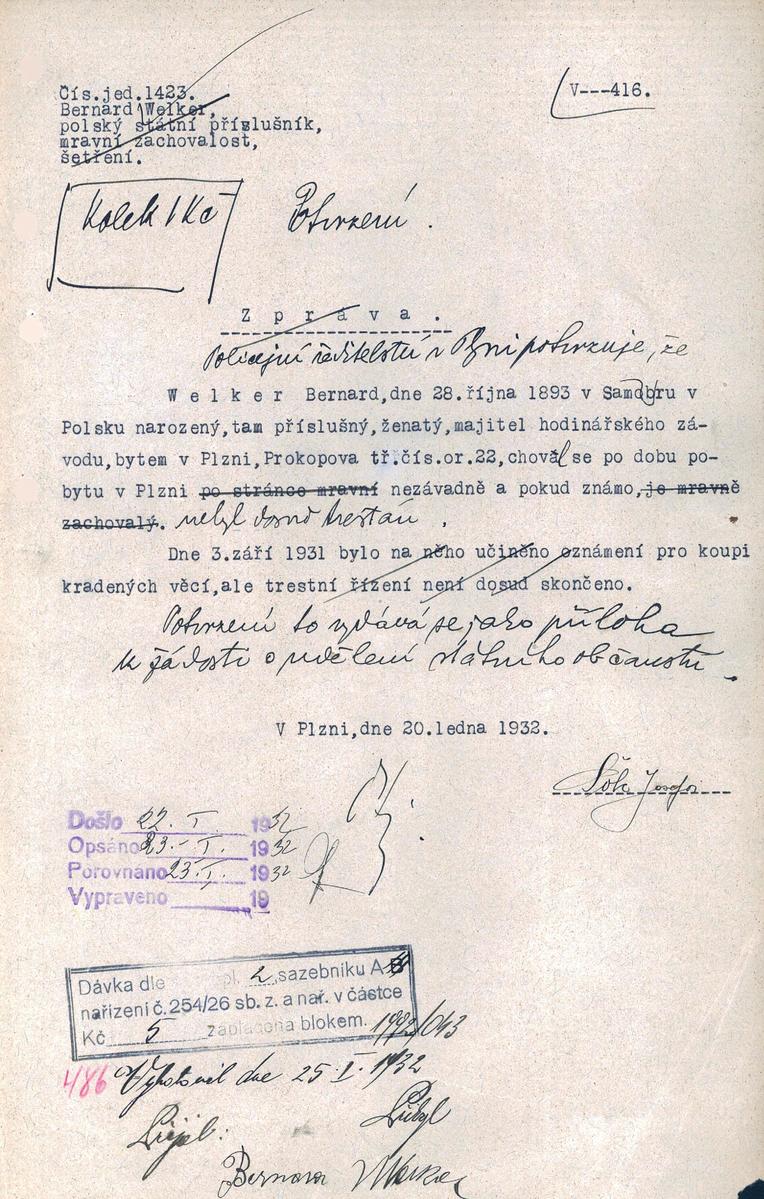 Čís.jed.1423.
V---416.
Bernard Welker,
polský státní příslušník,
mravní zachovalost,
šetření.
Kolek 1 Kč
Potvrzení.
Zpráva.
Policejní ředitelství v Plzni potvrzuje, že
Welker Bernard,dne 28.října 1893 v Samboru v
Polsku narozený,tam příslušný,ženatý,majitel hodinářského zá-
vodu,bytem v Plzni,Prokopova tř.čís.or.22,choval se po dobu po-
bytu v Plzni po stránce mravní nezávadně a pokud známo,je mravně
zachovalý. nebyl dosud trestán.
Dne 3.září 1931 bylo na něho učiněno oznámení pro koupi
kradených věcí,ale trestní řízení není dosud skončeno.
Potvrzení to vydává se jako příloha
k žádosti o udělení státního občanství.
V Plzni,dne 20.ledna 1932.
Došlo 22. I. 1932
Opsáno 23.- I. 1932
Porovnáno 23. I. 1932
Vypraveno 19
Dávka dle pl. 2, sazebníku A
nařízení č.254/26 sb. z. a nař. v částce
Kč 5 zaplacena blokem. 1792/043
486 Vyhotovil dne 25. I. 1932
Bernard